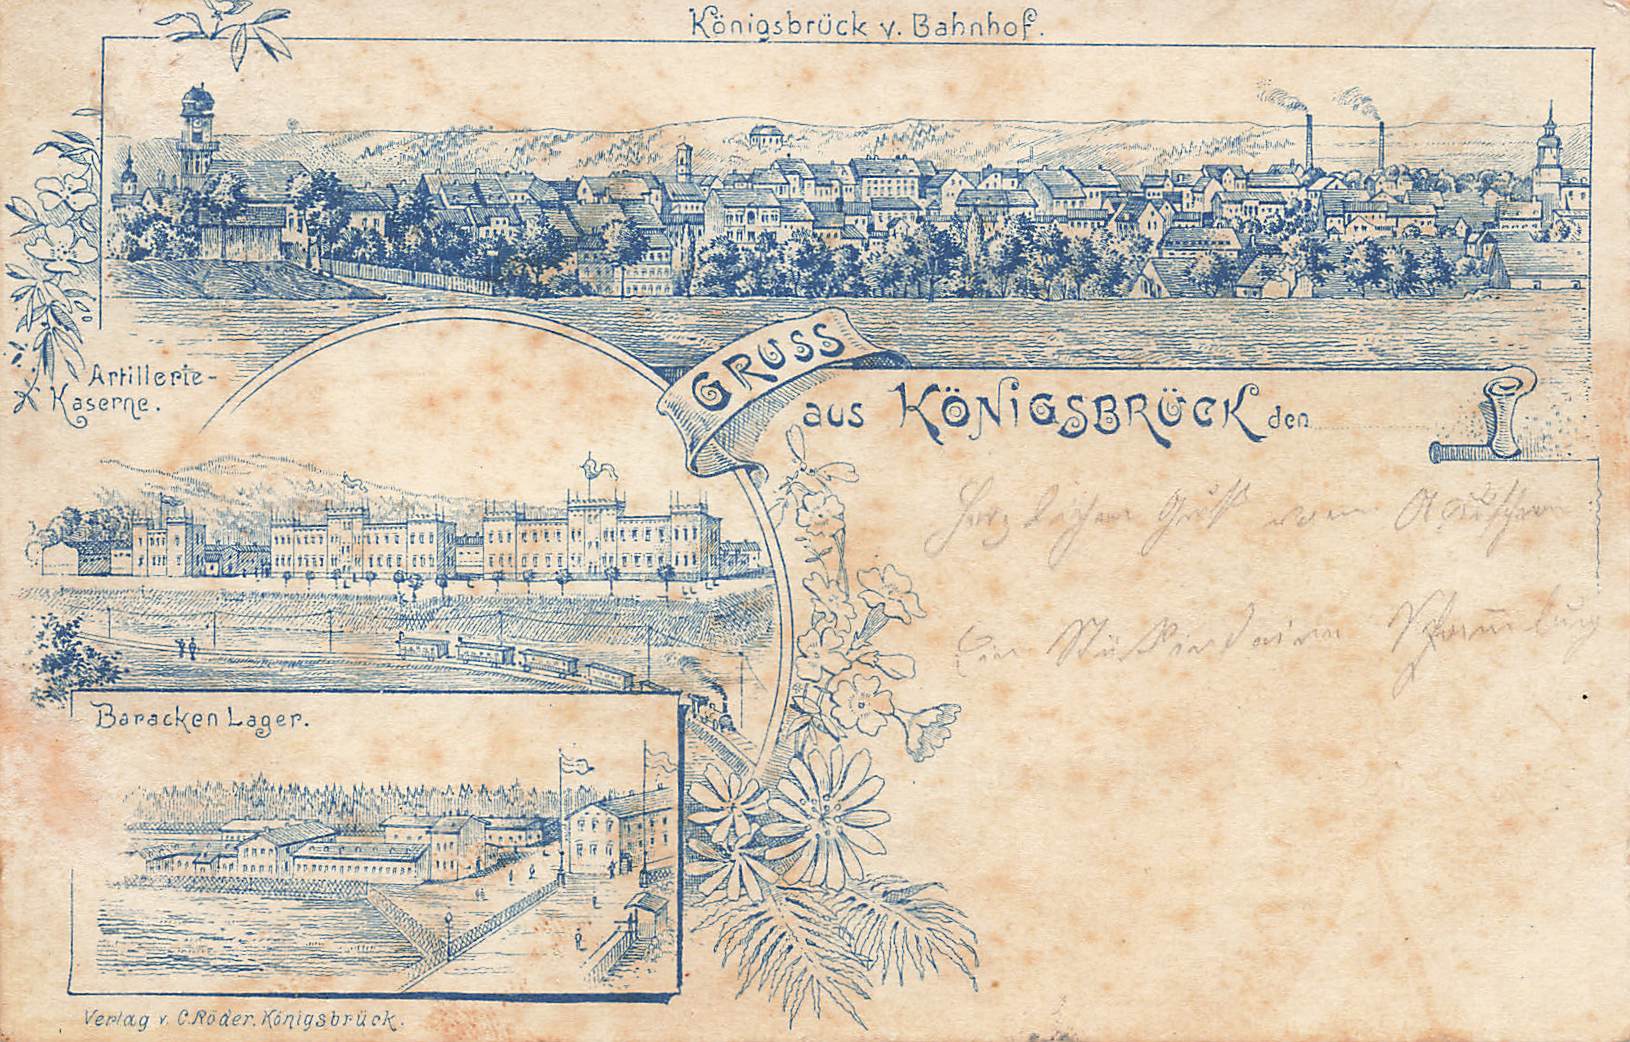 Königsbrück v. Bahnhof.
Artillerie-
Kaserne.
GRUSS
aus KÖNIGSBRÜCK den
Herzlichen Gruß vom
Baracken Lager.
Verlag v. C. Röder, Königsbrück.